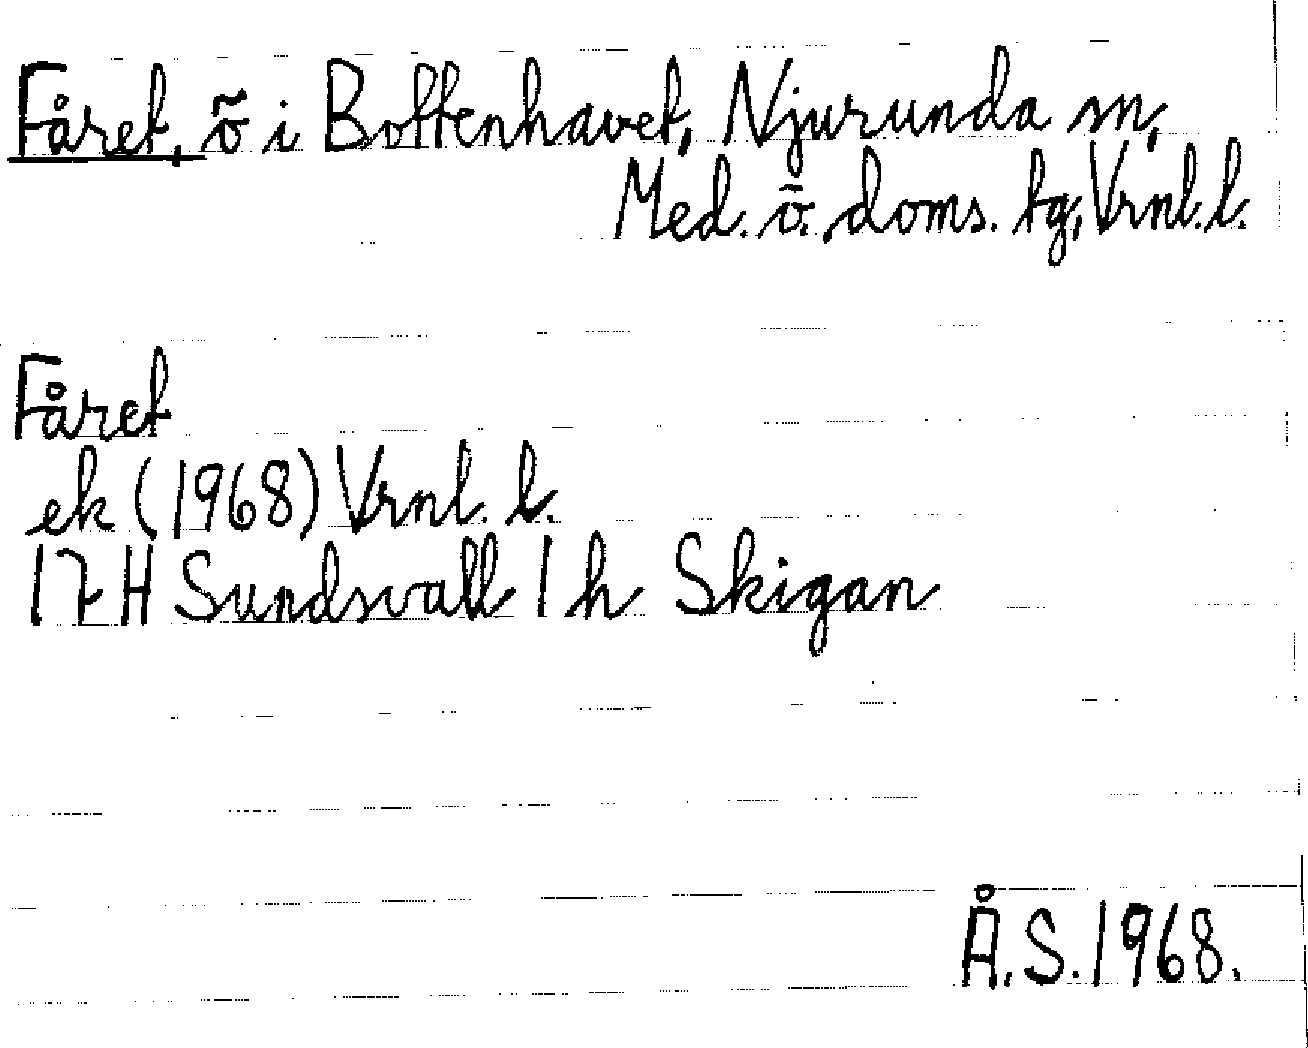 Fåret, ö i Bottenhavet, Njurunda sn,
Med. ö. doms. tg, Vrnl. l.
Fåret
ek (1968) Vrnl. l.
17 H Sundsvall 1 h Skigan
Å. S. 1968.